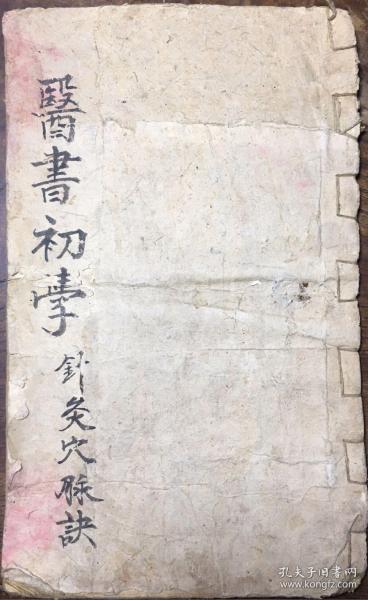 醫書初學
針灸穴脉訣
孔夫子旧书网
www.kongfz.com